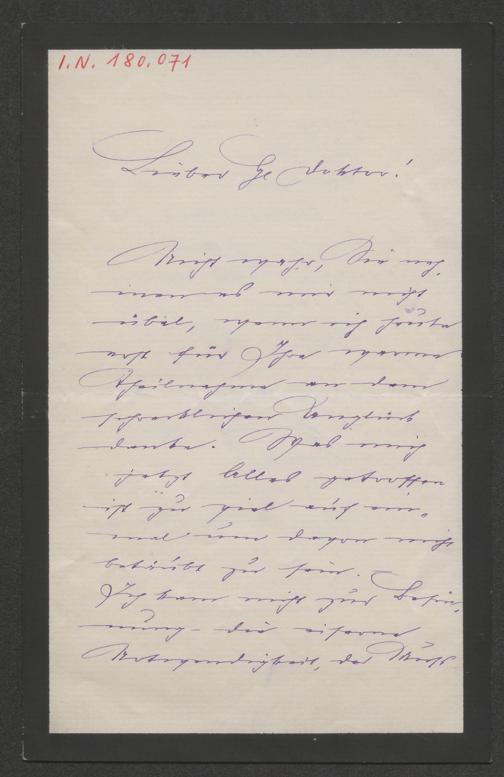 I.N. 180.071
Lieber Hr Doktor!
Nicht wahr, Sie neh,
men es mir nicht
übel, wenn ich heute
erst für Ihre warme
Theilnahme an dem
schrecklichen Unglück
danke. Was mich
jetzt Alles getroffen
ist zu viel auf ein,
mal um davon nicht
betäubt zu sein.
Ich kam nicht zur Besin,
nung - die eiserne
Notwendigkeit, der